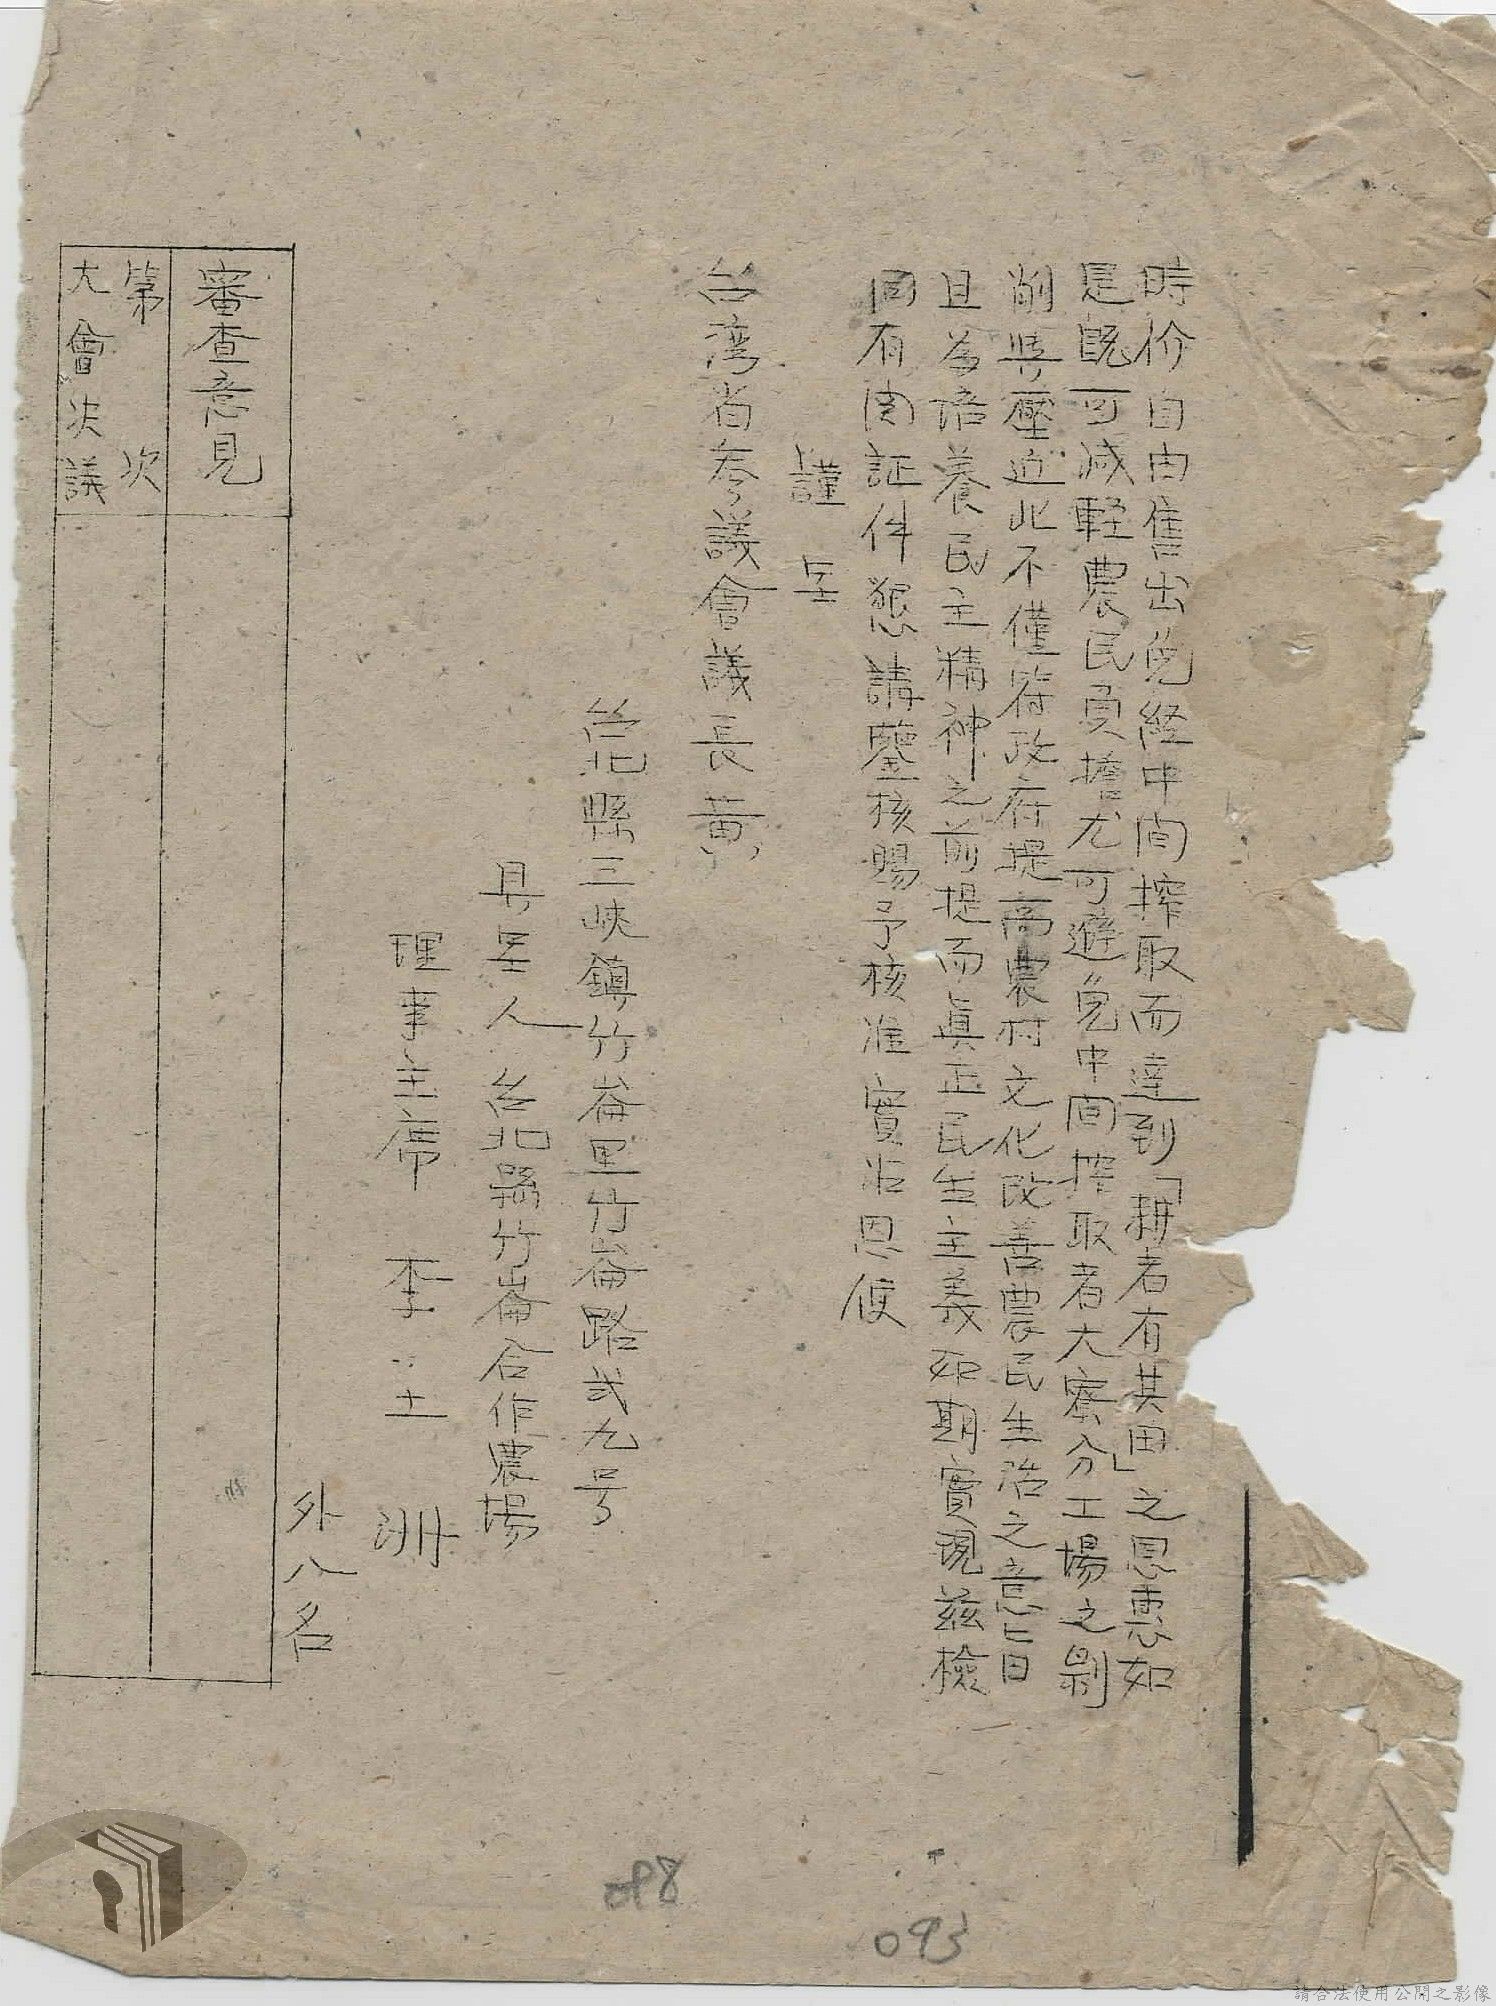 時价自由售出免経中间搾取而達到「耕者有其田」之恩惠如
是既可减軽農民負擔尤可避免中间搾取者大寮分工場之剝
削與壓迫此不僅符政府提高農村文化改善農民生活之意旨
且為培養民主精神之前提而眞正民生主義如期實現茲檢
同有関証件懇請鑒核賜予核准實沾恩便
謹呈
台湾省参議會議長黄
台北縣三峡鎮竹崙里竹崙路弍九号
具呈人台北縣竹崙合作農場
理事主席 李土洲
外八名
審查意見
第 次
大會决議
098
093
請合法使用公開之影像